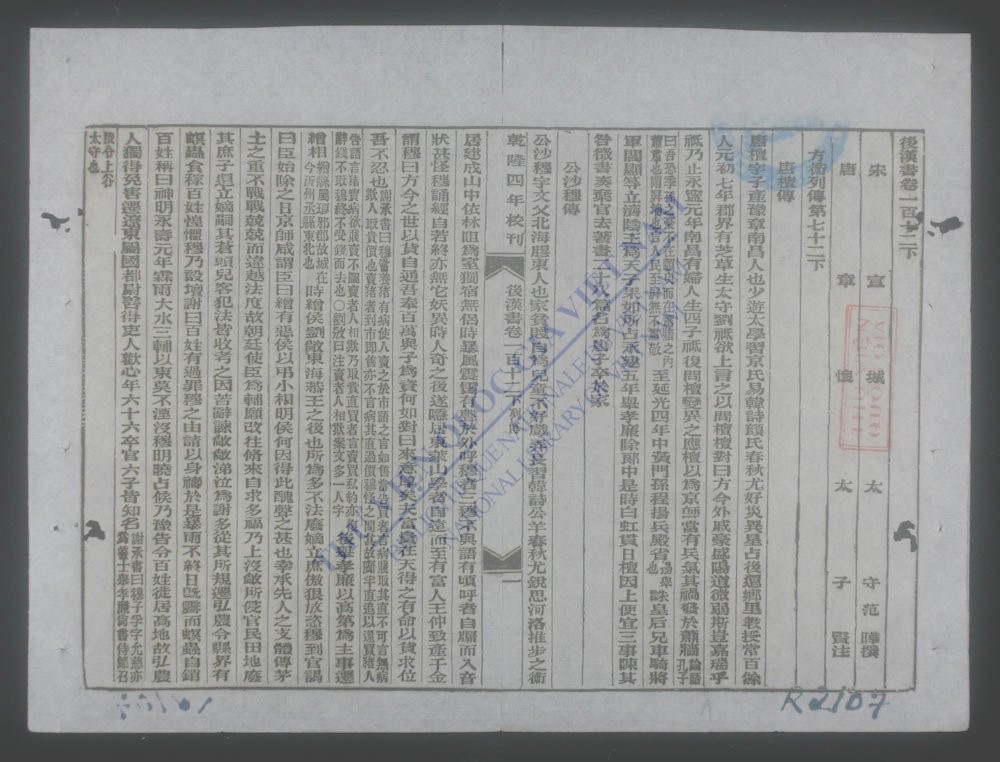 後漢書卷一百十二下
宋宣城太守范曄撰
唐章懷太子賢注
方術列傳第七十二下
唐檀傳
唐檀字子產豫章南昌人也少遊太學習京氏易韓詩顏氏春秋尤好災異星占後還鄉里教授常百餘
人元初七年郡界有芝草生太守劉祗欲上言之以問檀檀對曰方今外戚豪盛陽道微弱斯豈嘉瑞乎
祗乃止永寧元年南昌有婦人生四子祗復問檀變異之應檀以為京師當有兵氣其禍發於蕭牆論語孔子
曰吾恐季孫之憂不在顓臾而在蕭牆之內至延光四年中黃門孫程揚兵殿省誅皇后兄車騎將
軍閻顯等立濟陰王為天子果如所占永建五年舉孝廉除郎中是時白虹貫日檀因上便宜三事陳其
咎徵書奏棄官去著書二十八篇名為唐子卒於家
公沙穆傳
公沙穆字文乂北海膠東人也家貧賤自為兒童不好戲弄長習韓詩公羊春秋尤銳思河洛推步之術
乾隆四年校刊
後漢書卷一百十二下列傳
一
居建成山中依林阻為室獨宿無侶時暴風震雷有聲於外呼穆者三穆不與語有頃呼者自牖而入音
狀甚怪穆誦經自若終亦無它妖異時人奇之後遂隱居東萊山學者自遠而至有富人王仲致產千金
謂穆曰方今之世以貨自通吾奉百萬與子為資何如對曰來意厚矣夫富貴在天得之有命以貨求位
吾不忍也後舉孝廉以高第為主事遷
繒相時繒侯劉敞東海恭王之後也所為多不法廢嫡立庶傲很放恣穆到官謁
曰臣始除之日京師咸謂臣曰繒有惡侯以弔小相明侯何因得此醜聲之甚也幸承先人之支體傳茅
土之重不戰戰兢兢而違越法度故朝廷使臣為輔願改往脩來自求多福乃上沒敞所侵官民田地廢
其庶子還立嫡嗣其蒼頭兒客犯法皆收考之因苦辭諫敞敞涕泣為謝多從其所規遷弘農令縣界有
螟蟲食稼百姓惶懼穆乃設壇謝曰百姓有過罪穆之由請以身禱於是暴雨不終日既霽而螟蟲自銷
百姓稱曰神明永壽元年霖雨大水三輔以東莫不湮沒穆明曉占候乃豫告令百姓徙居高地故弘農
人獨得免害遷遼東屬國都尉善得吏人歡心年六十六卒官六子皆知名謝承書曰穆子孚字允慈亦
為善士舉孝廉尚書侍郎召
陵令上谷
太守也
THƯ VIỆN QUỐC GIA VIỆT NAM
BIBLIOTHEQUE NATIONALE DU VIETNAM
NATIONAL LIBRARY OF VIETNAM
R2107